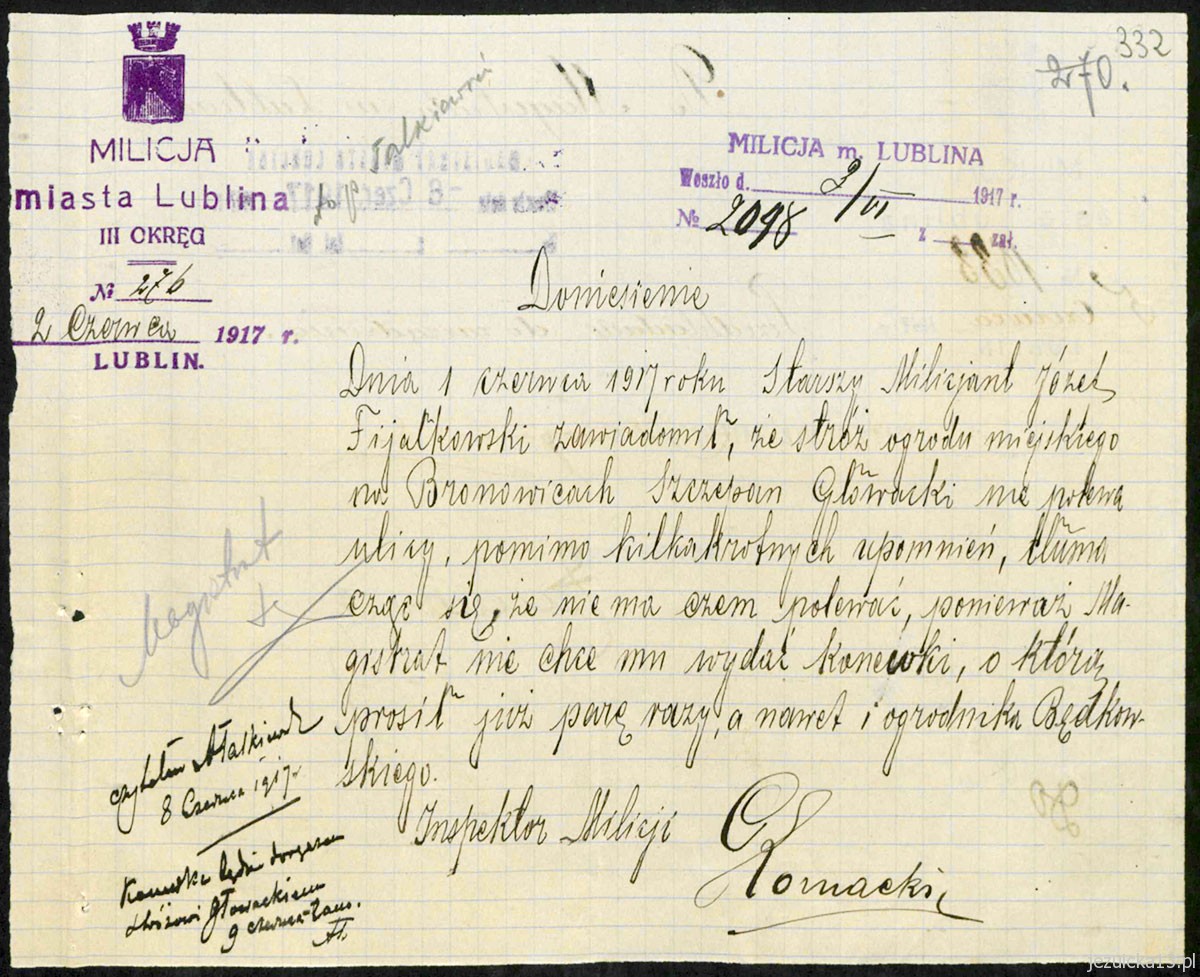 332
270.
MILICJA
miasta Lublina
III OKRĘG
№ 276
2 Czerwca 1917 r.
LUBLIN.
MILICJA m. LUBLINA
Weszło d. 2/VI 1917 r.
№ 2098 z zał.
Doniesienie
Dnia 1 czerwca 1917 roku Starszy Milicjant Józef
Fijałkowski zawiadomił, że stróż ogrodu miejskiego
na Bronowicach Szczepan Głowacki nie polewa
ulicy, pomimo kilkakrotnych upomnień, tłuma
cząc się, że nie ma czem polewać, ponieważ Ma-
gistrat nie chce mu wydać konewki, o którą
prosił już parę razy, a nawet i ogrodnika Będkow-
skiego.
Inspektor Milicji
Magistrat
czytałem
8 Czerwca 1917 r
Konewka będzie
stróżowi Głowackiemu
9 czerwca
jezuicka13.pl